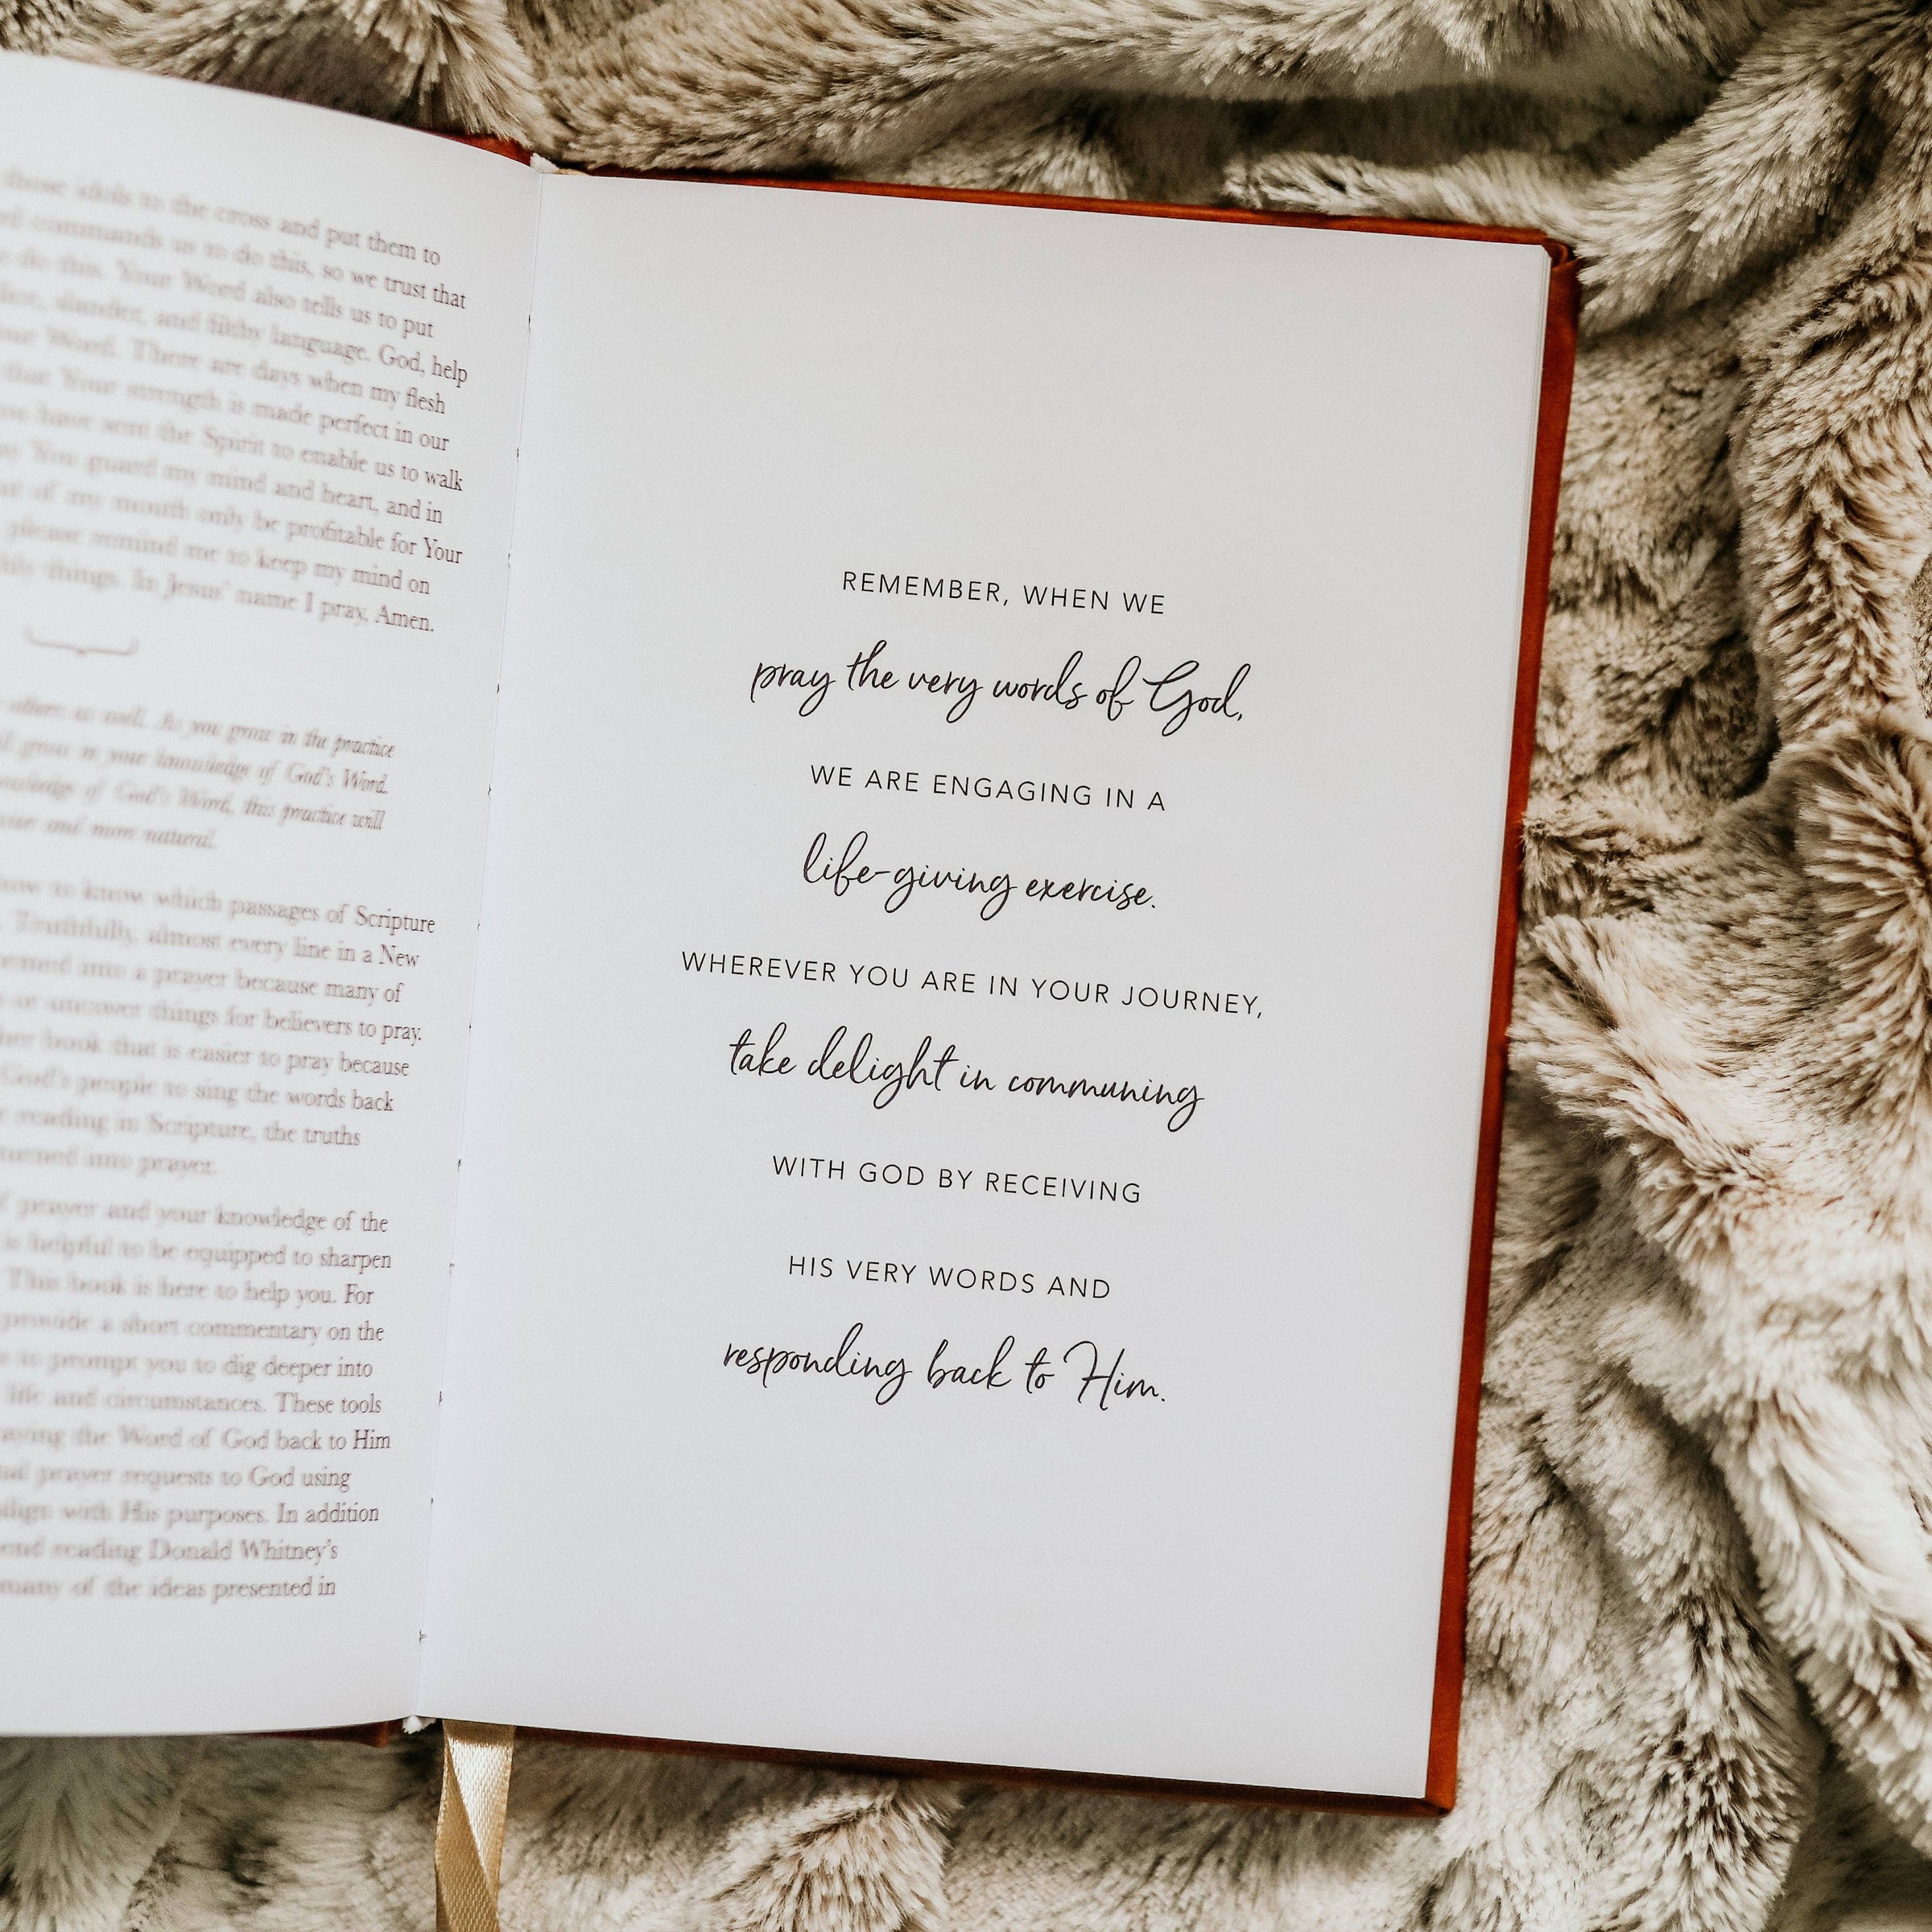 those idols to the cross and put them to
commands us to do this, so we trust that
do this. Your Word also tells us to put
slander, and filthy language. God, help
Your Word. There are days when my flesh
that Your strength is made perfect in our
have sent the Spirit to enable us to walk
You guard my mind and heart, and in
of my mouth only be profitable for Your
please remind me to keep my mind on
things. In Jesus' name I pray, Amen.
others as well. As you grow in the practice
grow in your knowledge of God's Word.
knowledge of God's Word, this practice will
and more natural.
how to know which passages of Scripture
Truthfully, almost every line in a New
into a prayer because many of
or uncover things for believers to pray.
book that is easier to pray because
God's people to sing the words back
reading in Scripture, the truths
turned into prayer.
prayer and your knowledge of the
is helpful to be equipped to sharpen
This book is here to help you. For
provide a short commentary on the
to prompt you to dig deeper into
life and circumstances. These tools
praying the Word of God back to Him
prayer requests to God using
align with His purposes. In addition
reading Donald Whitney's
many of the ideas presented in
REMEMBER, WHEN WE
pray the very words of God,
WE ARE ENGAGING IN A
life-giving exercise.
WHEREVER YOU ARE IN YOUR JOURNEY,
take delight in communing
WITH GOD BY RECEIVING
HIS VERY WORDS AND
responding back to Him.